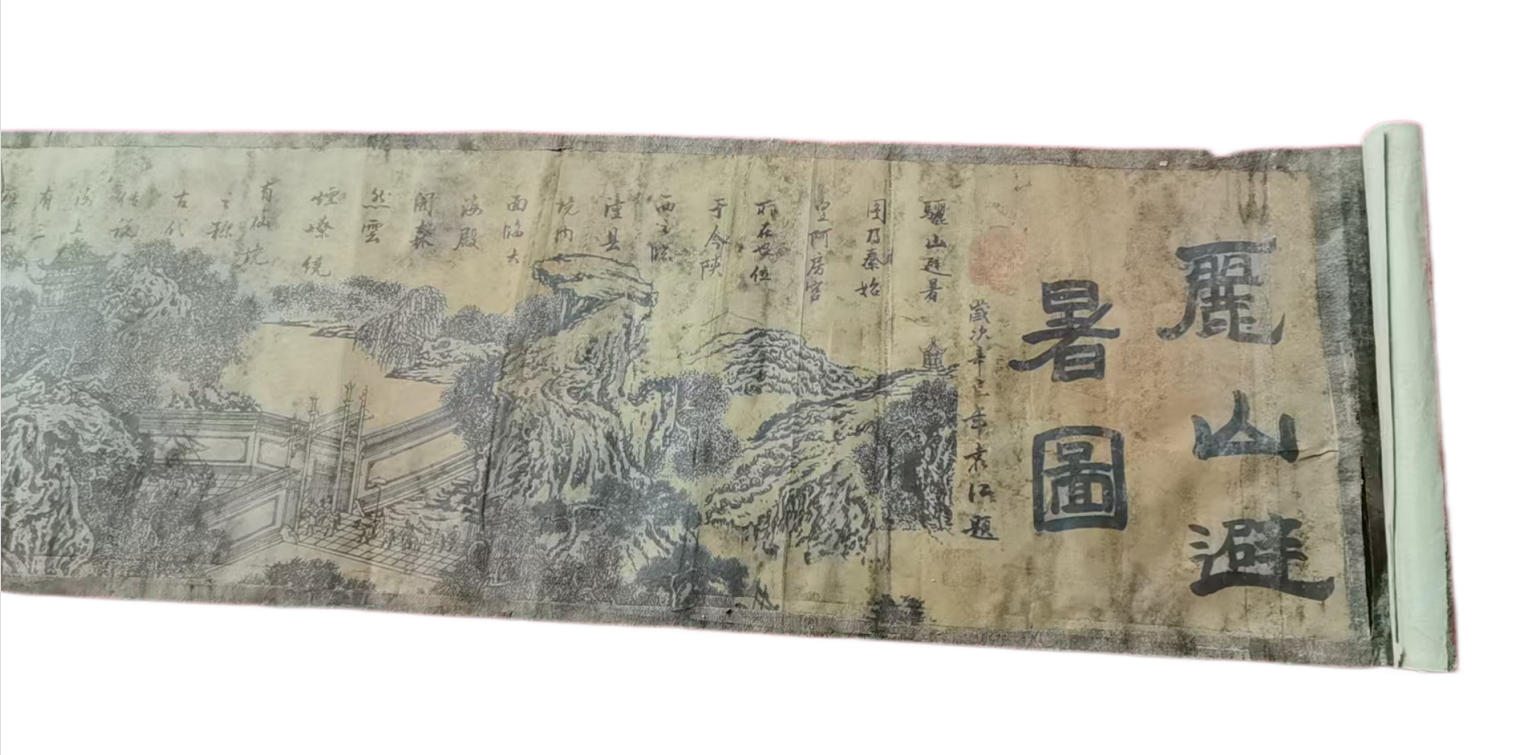 麗山避
暑圖
歲次辛三年袁江題
驪山避暑
圖乃秦始
皇阿房宮
所在母位
于今陝
西之臨
潼县
境内
面临大
海殿
阁森
然雲
煙嫽绕
有仙境
之稱
古代
傳說
海上
有三